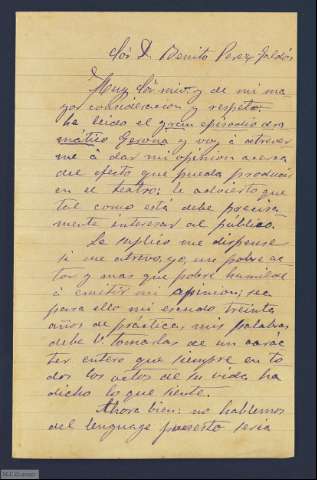 Sór D. Benito Perez Galdós
Muy Sór mio y de mi ma
yor consideracion y respeto:
he leido el gran episodio dra
mático Gerona y voy á atrever
me á dar mi opinion acerca
del efecto que pueda producir
en el teatro; le advierto que
tal como está debe precisa
mente interesar al público.
Le suplico me dispense
si me atrevo, yo, un pobre ac
tor y mas que pobre humilde
á emitir mi opinion; sea
para ello mi escudo treinta
años de práctica; mis palabras
debe V. tomarlas de un carác
ter entero que siempre en to
dos los actos de su vida ha
dicho lo que siente.
Ahora bien: no hablemos
del lenguage puesto seria